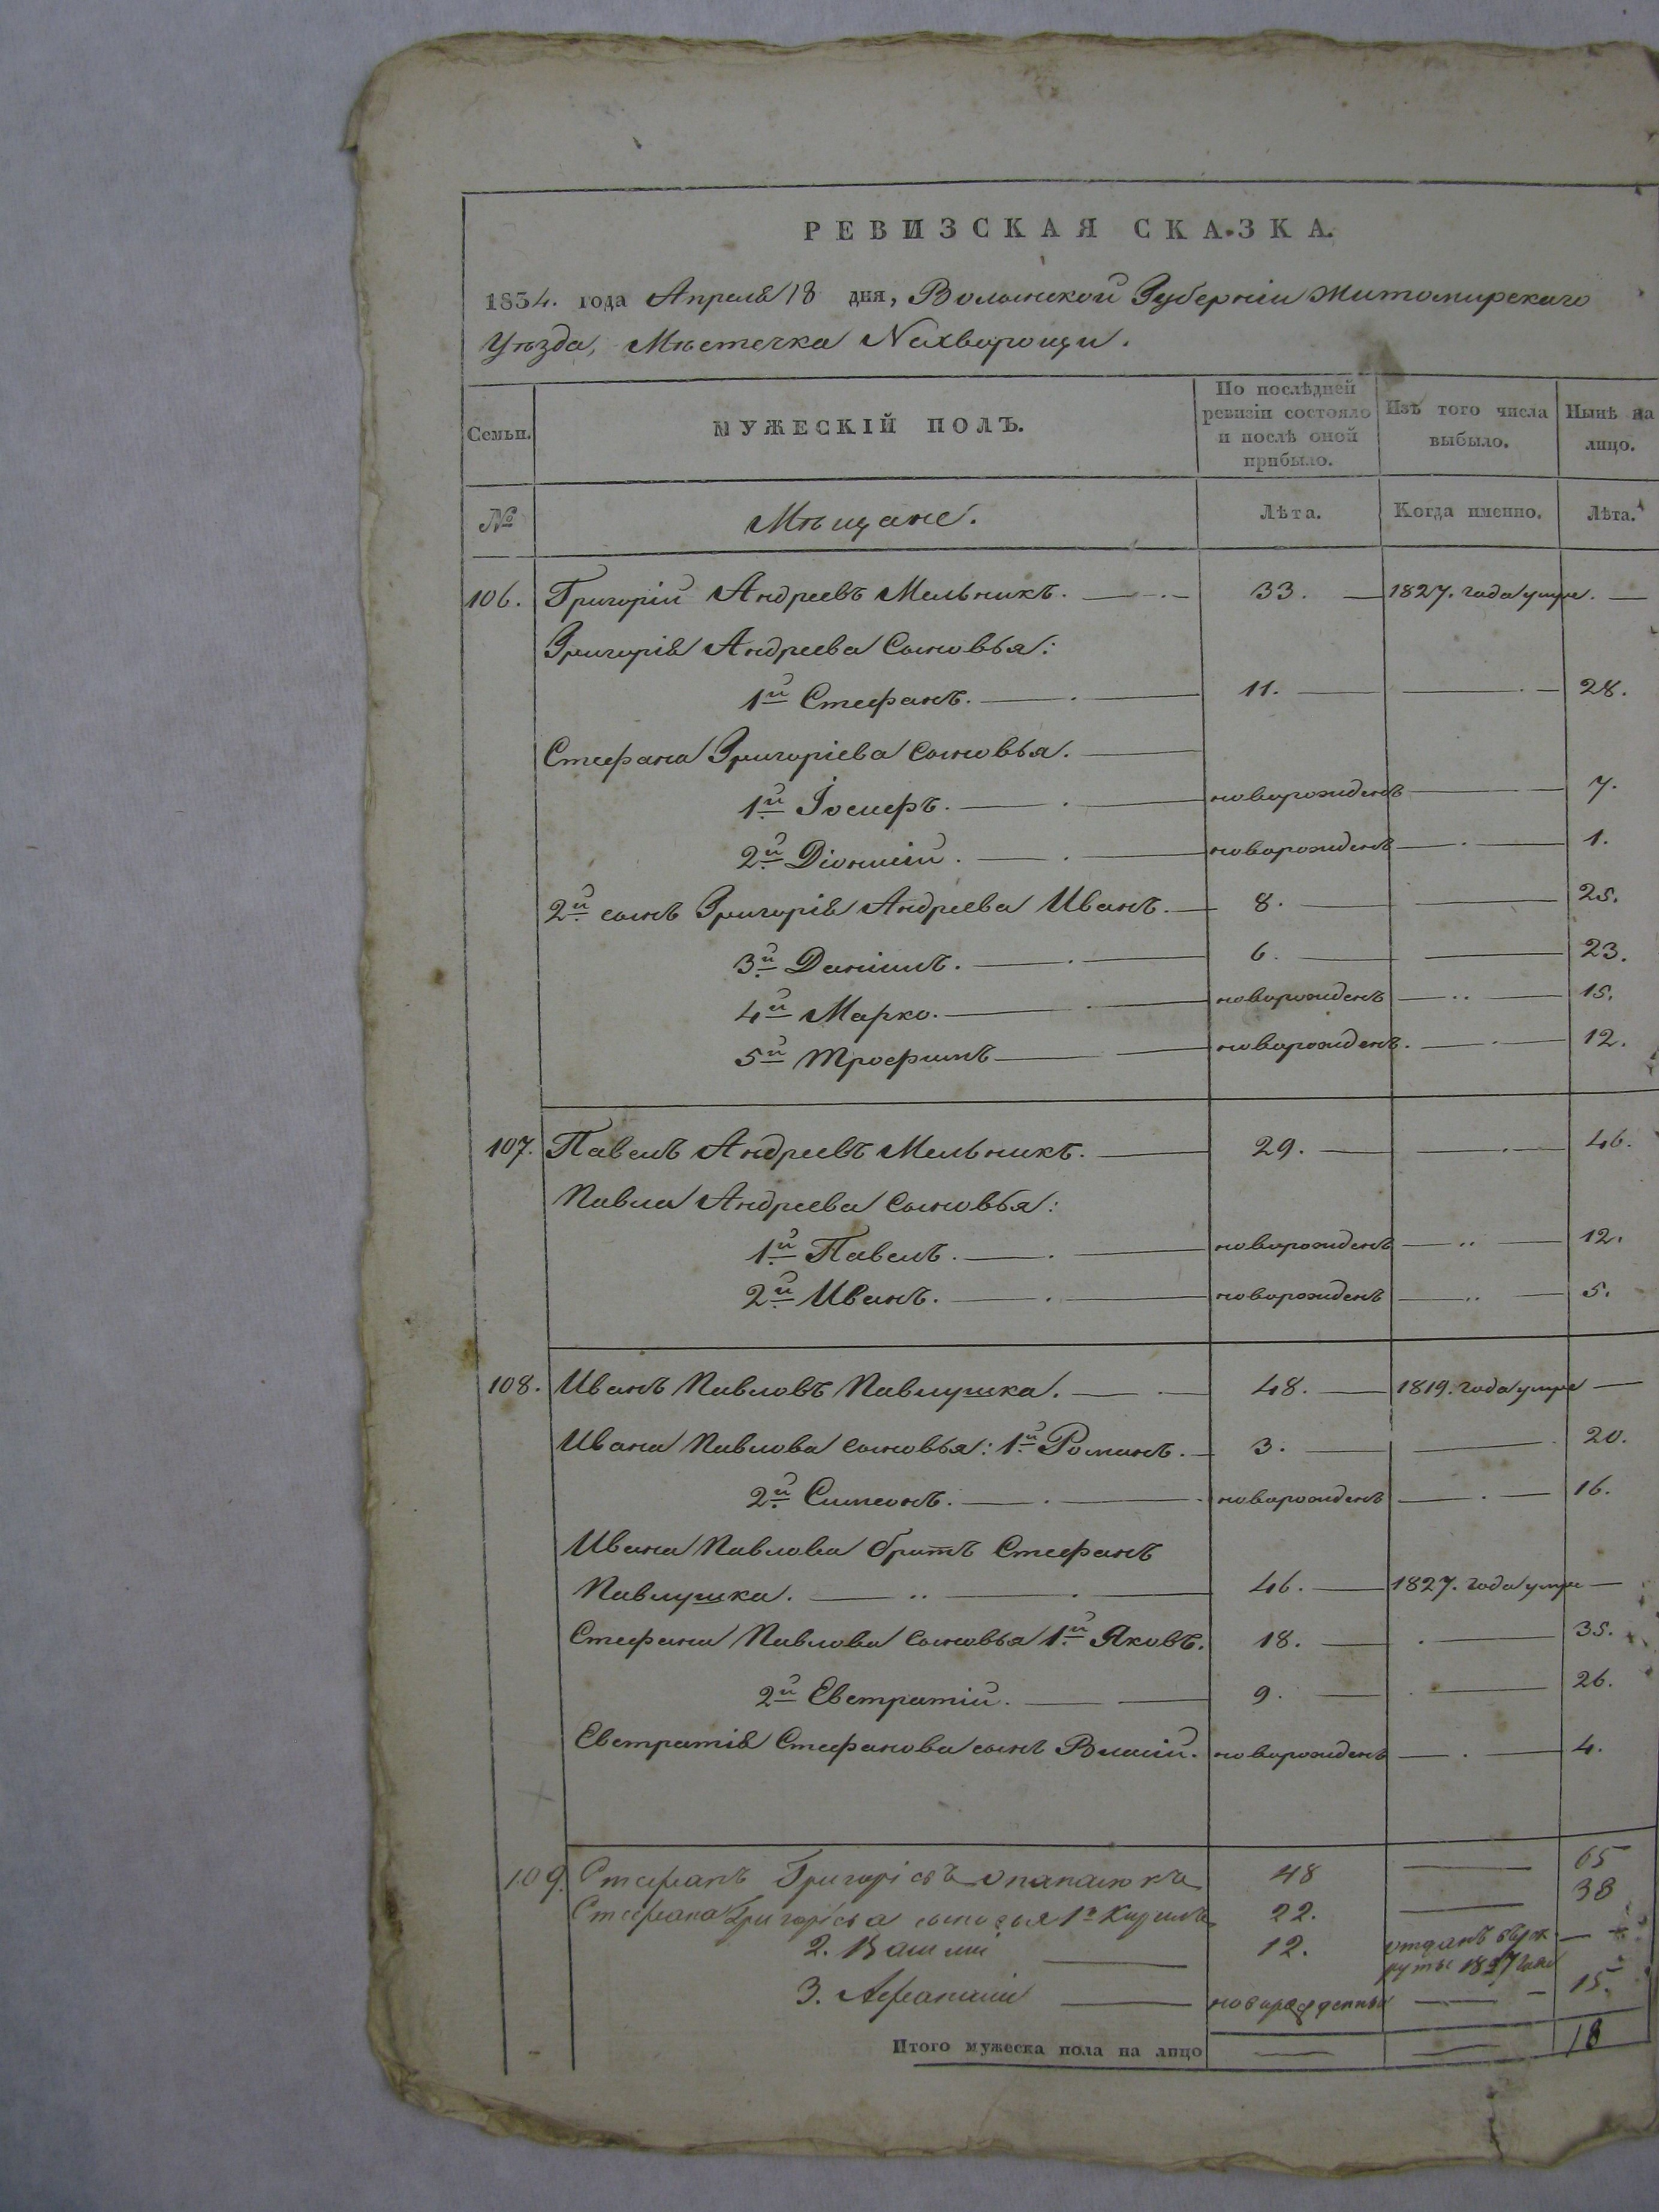 РЕВИЗСКАЯ СКАЗКА.
1834. года Апреля 18 дня, Волынской Губерніи Житомирскаго
Уѣзда, Мѣстечка Нехворощи.
Семьи. МУЖЕСКІЙ ПОЛЪ. По послѣдней ревизіи состояло и послѣ оной прибыло. Изъ того числа выбыло. Нынѣ на лицо.
№ Мѣщане. Лѣта. Когда именно. Лѣта.
106. Григорій Андреевъ Мельникъ. 33. 1827. года умре.
Григорія Андреева Сыновья:
1й Стефанъ. 11. 28.
Стефана Григоріева Сыновья.
1й Іосифъ. новорожденъ 7.
2й Діонисій. новорожденъ 1.
2й сынъ Григорія Андреева Иванъ. 8. 25.
3й Даніилъ. 6. 23.
4й Марко. новорожденъ 15.
5й Трофимъ новорожденъ. 12.
107. Павелъ Андреевъ Мельникъ. 29. 46.
Павла Андреева Сыновья:
1й Павелъ. новорожденъ 12.
2й Иванъ. новорожденъ 5.
108. Иванъ Павловъ Павлушка. 48. 1819. года умре
Ивана Павлова сыновья: 1й Романъ. 3. 20.
2й Симеонъ. новорожденъ 16.
Ивана Павлова братъ Стефанъ
Павлушка. 46. 1827. года умре
Стефана Павлова Сыновья 1й Яковъ. 18. 35.
2й Евстратій. 9. 26.
Евстратія Стефанова сынъ Власій. новорожденъ 4.
109. Стефанъ Григоріевъ 48 65
Стефана Григорієва сыновья 1й Кирилъ 22. 38
2. Василій 12. отданъ врек
руты 1827 года
3. Афанасій новорожденный 15.
Итого мужеска пола на лицо 18